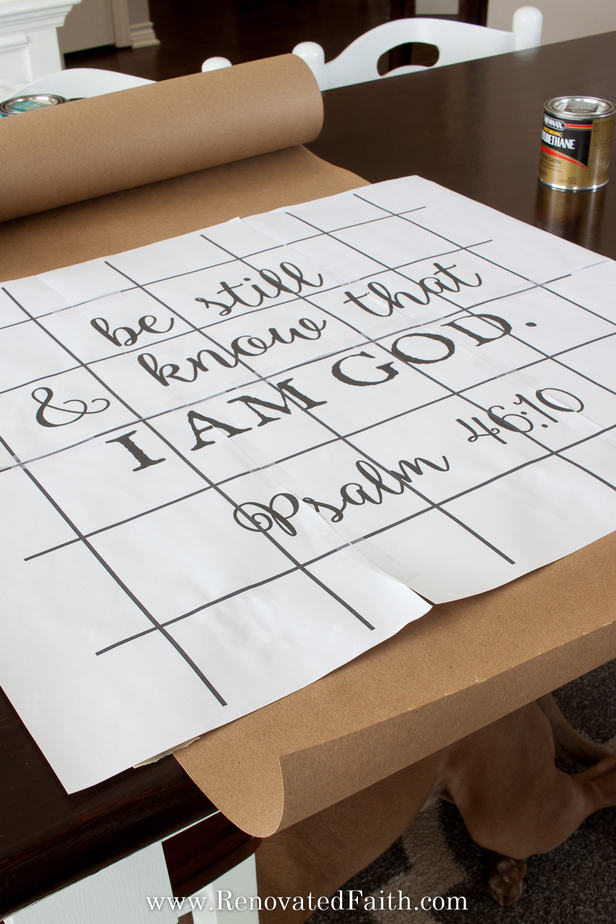 be still
& know that
I AM GOD.
Psalm 46:10
www.RenovatedFaith.com